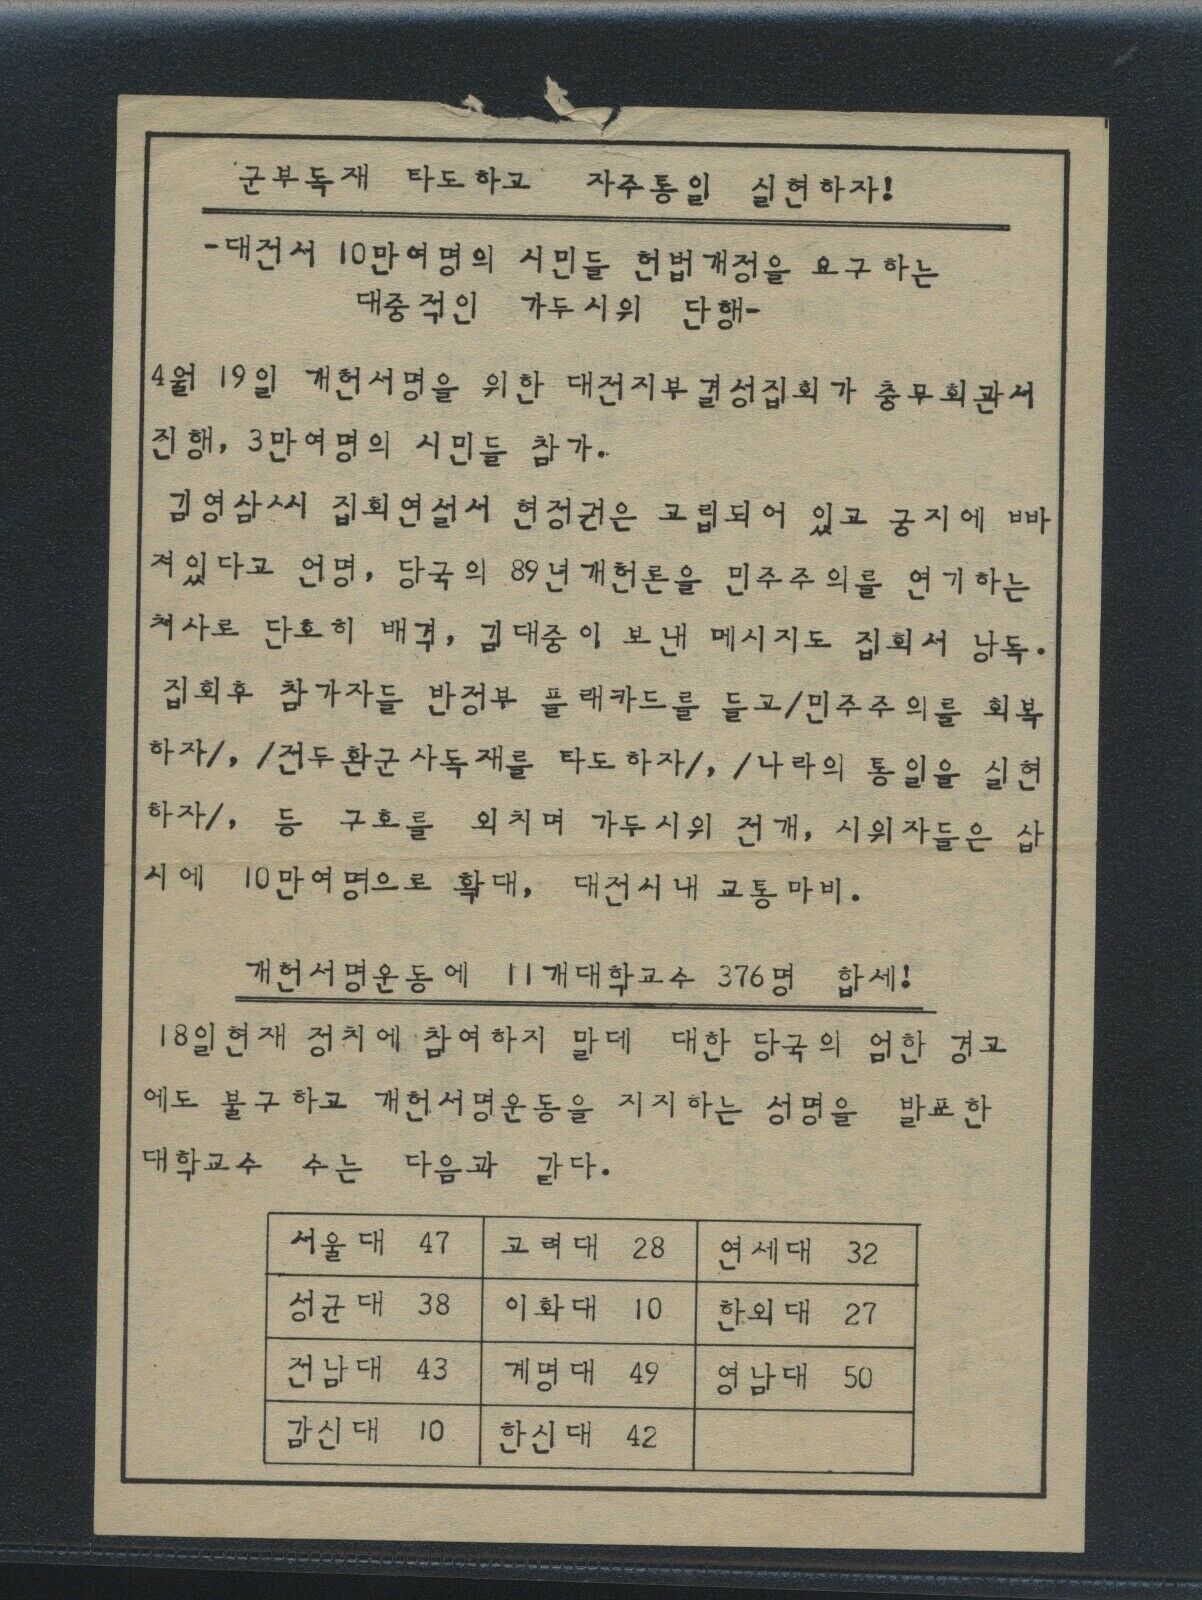 군부독재 타도하고 자주통일 실현하자!
-대전서 10만여명의 시민들 헌법개정을 요구하는
대중적인 가두시위 단행-
4월 19일 개헌서명을 위한 대전지부결성집회가 충무회관서
진행, 3만여명의 시민들 참가.
김영삼씨 집회연설서 현정권은 고립되어 있고 궁지에 빠
져있다고 언명, 당국의 89년개헌론을 민주주의를 연기하는
처사로 단호히 배격, 김대중이 보낸 메시지도 집회서 낭독.
집회후 참가자들 반정부 플래카드를 들고/민주주의를 회복
하자/, /전두환군사독재를 타도하자/, /나라의 통일을 실현
하자/, 등 구호를 외치며 가두시위 전개, 시위자들은 삽
시에 10만여명으로 확대, 대전시내 교통마비.
개헌서명운동에 11개대학교수 376명 합세!
18일현재 정치에 참여하지 말데 대한 당국의 엄한 경고
에도 불구하고 개헌서명운동을 지지하는 성명을 발표한
대학교수 수는 다음과 같다.
서울대 47 고려대 28 연세대 32
성균대 38 이화대 10 한외대 27
전남대 43 계명대 49 영남대 50
감신대 10 한신대 42